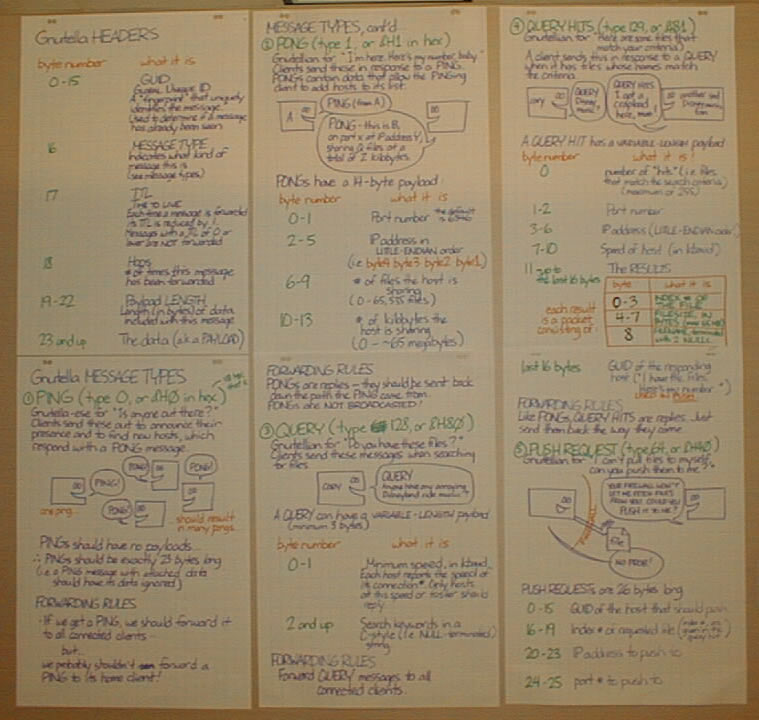 Gnutella HEADERS
byte number what it is
0-15 GUID
GLOBAL UNIQUE ID
A "fingerprint" that uniquely
identifies the message.
Used to determine if a message
has already been seen
16 MESSAGE TYPE
Indicates what kind of
message this is
(see message types)
17 TTL
TIME TO LIVE
Each time a message is forwarded
its TTL is reduced by 1.
Messages with a TTL of 0 or
lower are NOT forwarded
18 Hops
# of times this message
has been forwarded
19-22 Payload LENGTH
Length (in bytes) of data
included with this message
23 and up The data (a.k.a PAYLOAD)
Gnutella MESSAGE TYPES
① PING (type 0, or &H0 in hex)
Gnutella-ese for "Is anyone out there?"
Clients send these out to announce their
presence and to find new hosts, which
respond with a PONG message.
PING!
PONG!
PONG!
PONG!
one ping...
...should result
in many pongs.
PINGs should have no payloads...
∴ PINGs should be exactly 23 bytes long
(i.e a PING message with attached data
should have its data ignored)
FORWARDING RULES
- If we get a PING, we should forward it
to all connected clients...
but...
we probably shouldn't forward a
PING to its home client!
MESSAGE TYPES, cont'd
② PONG (type 1, or &H1 in hex)
Gnutellian for "I'm here. Here's my number, baby."
Clients send these in response to a PING.
PONGs contain data that allow the PINGing
client to add hosts to its list.
A
PING (from A)
PONG - this is B,
on port X at IP address Y,
sharing Q files at a
total of Z kilobytes.
PONGs have a 14-byte payload:
byte number what it is
0-1 Port number the default is 6346
2-5 IP address in
LITTLE-ENDIAN order
(i.e byte4 byte3 byte2 byte1)
6-9 # of files the host is
sharing
(0-65,535 files)
10-13 # of kilobytes the
host is sharing
(0 - ~65 megabytes)
FORWARDING RULES
PONGs are replies - they should be sent back
down the path the PING came from.
PONGs are NOT BROADCASTED!
③ QUERY (type 128, or &H80)
Gnutellian for "Do you have these files?"
Clients send these messages when searching
for files.
CORY
QUERY
Anyone have any annoying
Disneyland ride music?
A QUERY can have a VARIABLE-LENGTH payload
(minimum 3 bytes)
byte number what it is
0-1 Minimum speed, in kbaud.
Each host reports the speed of
its connection. Only hosts
at this speed or faster should
reply.
2 and up Search keywords in a
C-style (i.e NULL-terminated)
string
FORWARDING RULES
Forward QUERY messages to all
connected clients.
④ QUERY HITS (type 129, or &H81)
Gnutellian for "Here are some files that
match your criteria."
A client sends this in response to a QUERY
when it has files whose names match
the criteria.
CORY
QUERY
Disney
music!
QUERY HITS
I got a
crapload
here, man!
another sad
Disney music
fan
A QUERY HIT has a VARIABLE-LENGTH payload
byte number what it is!
0 number of "hits" (i.e files
that match the search criteria)
(maximum of 255)
1-2 Port number
3-6 IP address (LITTLE-ENDIAN order)
7-10 Speed of host (in kbaud)
11 up to
the last 16 bytes The RESULTS
each result
is a packet
consisting of:
byte what it is
0-3 INDEX # OF
THE FILE
4-7 FILESIZE, IN
BYTES
8 FILENAME, terminated
with 2 NULLs
last 16 bytes GUID of the responding
host ("I have the files.
Here's my number.")
USED IN PUSH
FORWARDING RULES
Like PONGS, QUERY HITS are replies. Just
send them back the way they came.
⑤ PUSH REQUEST (type 64, or &H40)
Gnutellian for "I can't pull files to myself,
can you push them to me?"
YOUR FIREWALL WON'T
LET ME FETCH FILES
FROM YOU. COULD YOU
PUSH IT TO ME?
FIREWALL
file
NO PROB!
PUSH REQUESTs are 26 bytes long
0-15 GUID of the host that should push
16-19 Index # of requested file (index #s are
given in the
query hit)
20-23 IP address to push to
24-25 port # to push to